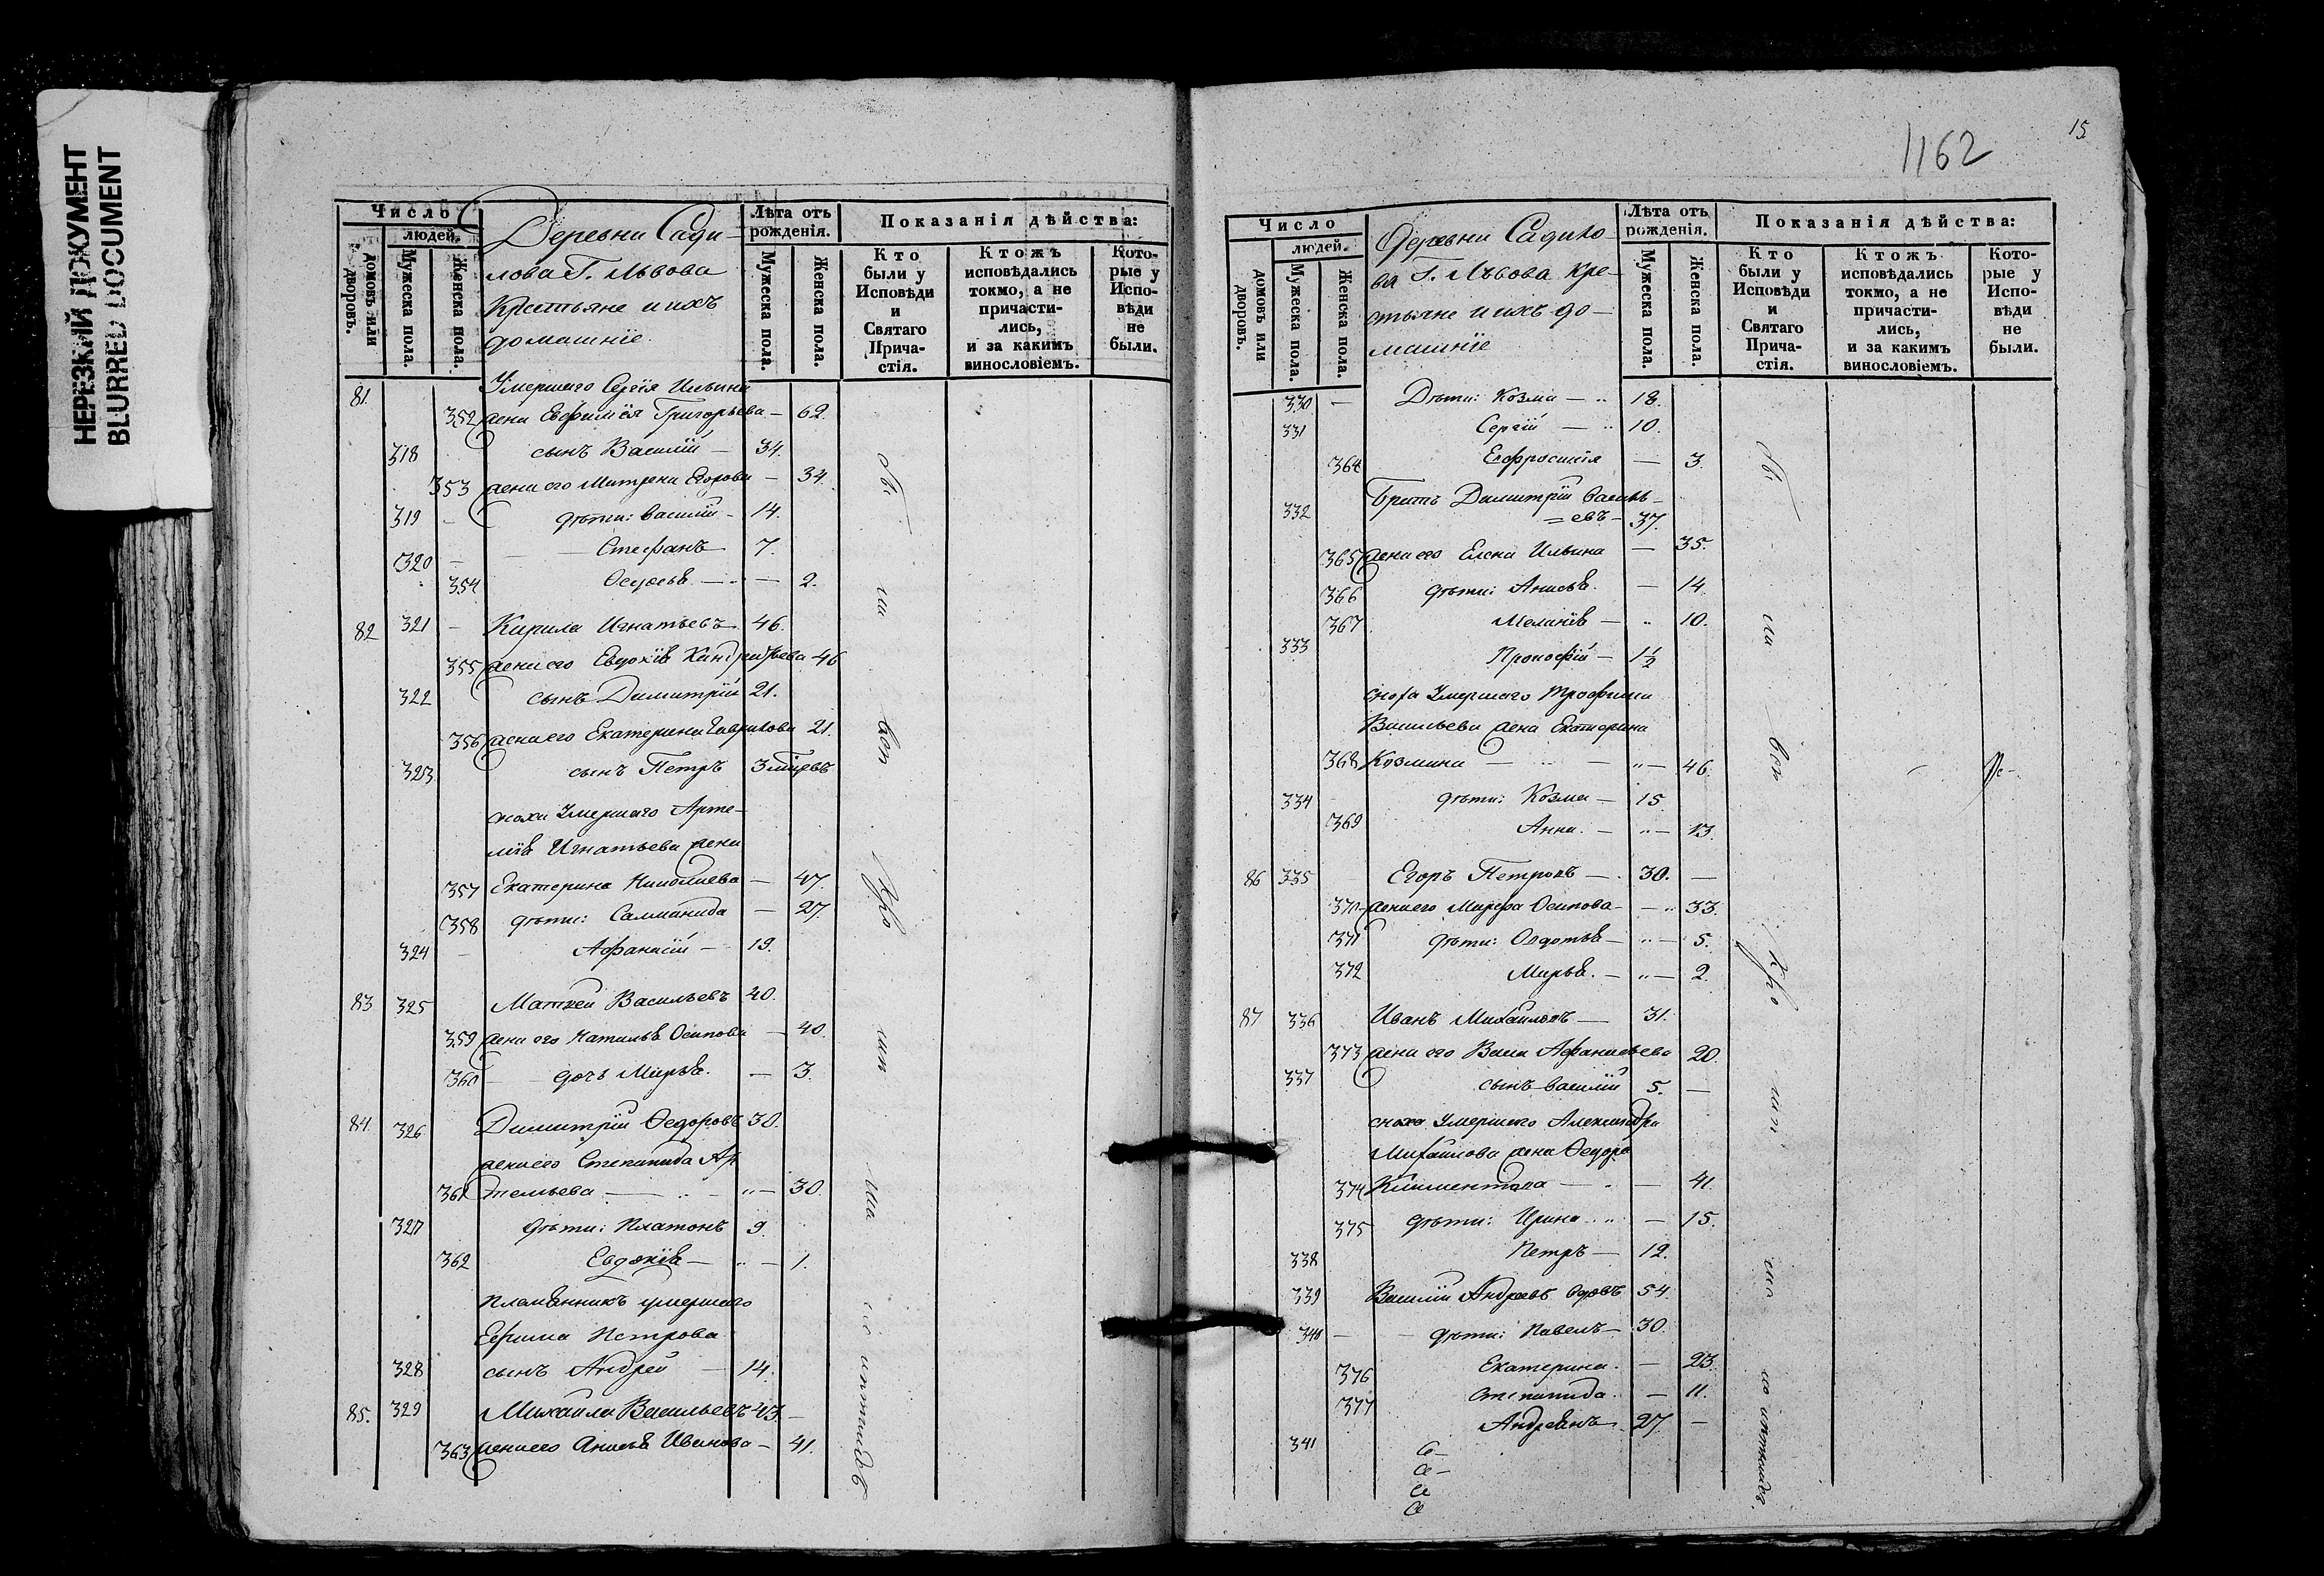 НЕРЕЗКИЙ ДОКУМЕНТ
BLURRED DOCUMENT
Число
людей.
домовъ или дворовъ.
Мужеска пола.
Женска пола.
Деревни Сади-
лова Г. Львова
Крестьяне и ихъ
домашніе.
Лѣта отъ рожденія.
Мужеска пола.
Женска пола.
Показанія дѣйства:
Кто были у Исповѣди и Святаго Причастія.
Ктожъ исповѣдались токмо, а не причастились, и за какимъ винословіемъ.
Которые у Исповѣди не были.
81. Умершаго Сергія Ильина
352 жена Евфимія Григорьева — 62.
318 сынъ Василій — 34.
353 жена его Матрена Егорова — 34.
319 дѣти: Василій — 14.
320 Стефанъ 7.
354 — 2.
82 321 Кирила Игнатьевъ 46.
355 жена его Евдокія 46
322 сынъ Димитрій 21.
356 жена его Екатерина Гаврилова 21.
323 сынъ Петръ 3
сноха Умершаго Арте-
мія Игнатьева жена
357 Екатерина Николаева — 47.
358 дѣти: — 27.
324 Афанасій — 19.
83 325 Матвей Васильевъ 40.
359 жена его Наталья Осипова — 40.
360 дочь Марья. — 3.
84. 326 Димитрій Ѳедоровъ 30.
жена его Степанида Ар
361 темьева — 30.
327 дѣти: Платонъ 9.
362 Евдокія — 1.
племянникъ умершаго
Ефима Петрова
328 сынъ Андрей — 14.
85. 329 Михаила Васильевъ 43 —
363 жена его Анисья Иванова — 41.
1162
15
Число
людей.
домовъ или дворовъ.
Мужеска пола.
Женска пола.
Деревни Садило-
ва Г. Львова Кре-
стьяне и ихъ до-
машніе
Лѣта отъ рожденія.
Мужеска пола.
Женска пола.
Показанія дѣйства:
Кто были у Исповѣди и Святаго Причастія.
Ктожъ исповѣдались токмо, а не причастились, и за какимъ винословіемъ.
Которые у Исповѣди не были.
330 — Дѣти: Козма — 18.
331 Сергій — 10.
364 Ефросинія — 3.
Братъ Димитрій Василь-
332 = евъ — 37.
365 жена его Елена Ильина — 35.
366 дѣти: Анисья. — 14.
367 — 10.
333 Прокофій — 1½
сноха Умершаго Трофима
Васильева жена Екатерина
368 Козмина — 46.
334 дѣти: Козма — 15.
369 Анна. — 13.
86 335 Егоръ Петровъ — 30. —
370 жена его Марфа Осипова — 33.
371 дѣти: Авдотья — 5.
372 Марья. — 2.
87 336 Иванъ Михайловъ — 31.
373 жена его Афанасьева 20.
337 сынъ Василій 5. —
сноха Умершаго Александра
Михайлова жена Ѳедора
374 Климентова — 41.
375 дѣти: Ирина — 15.
338 Петръ — 12.
339 Василій Андреевъ вдовъ 54.
340 — дѣти: Павелъ — 30.
376 Екатерина. — 23.
377 Степанида. — 11.
341 Андреянъ 27. —